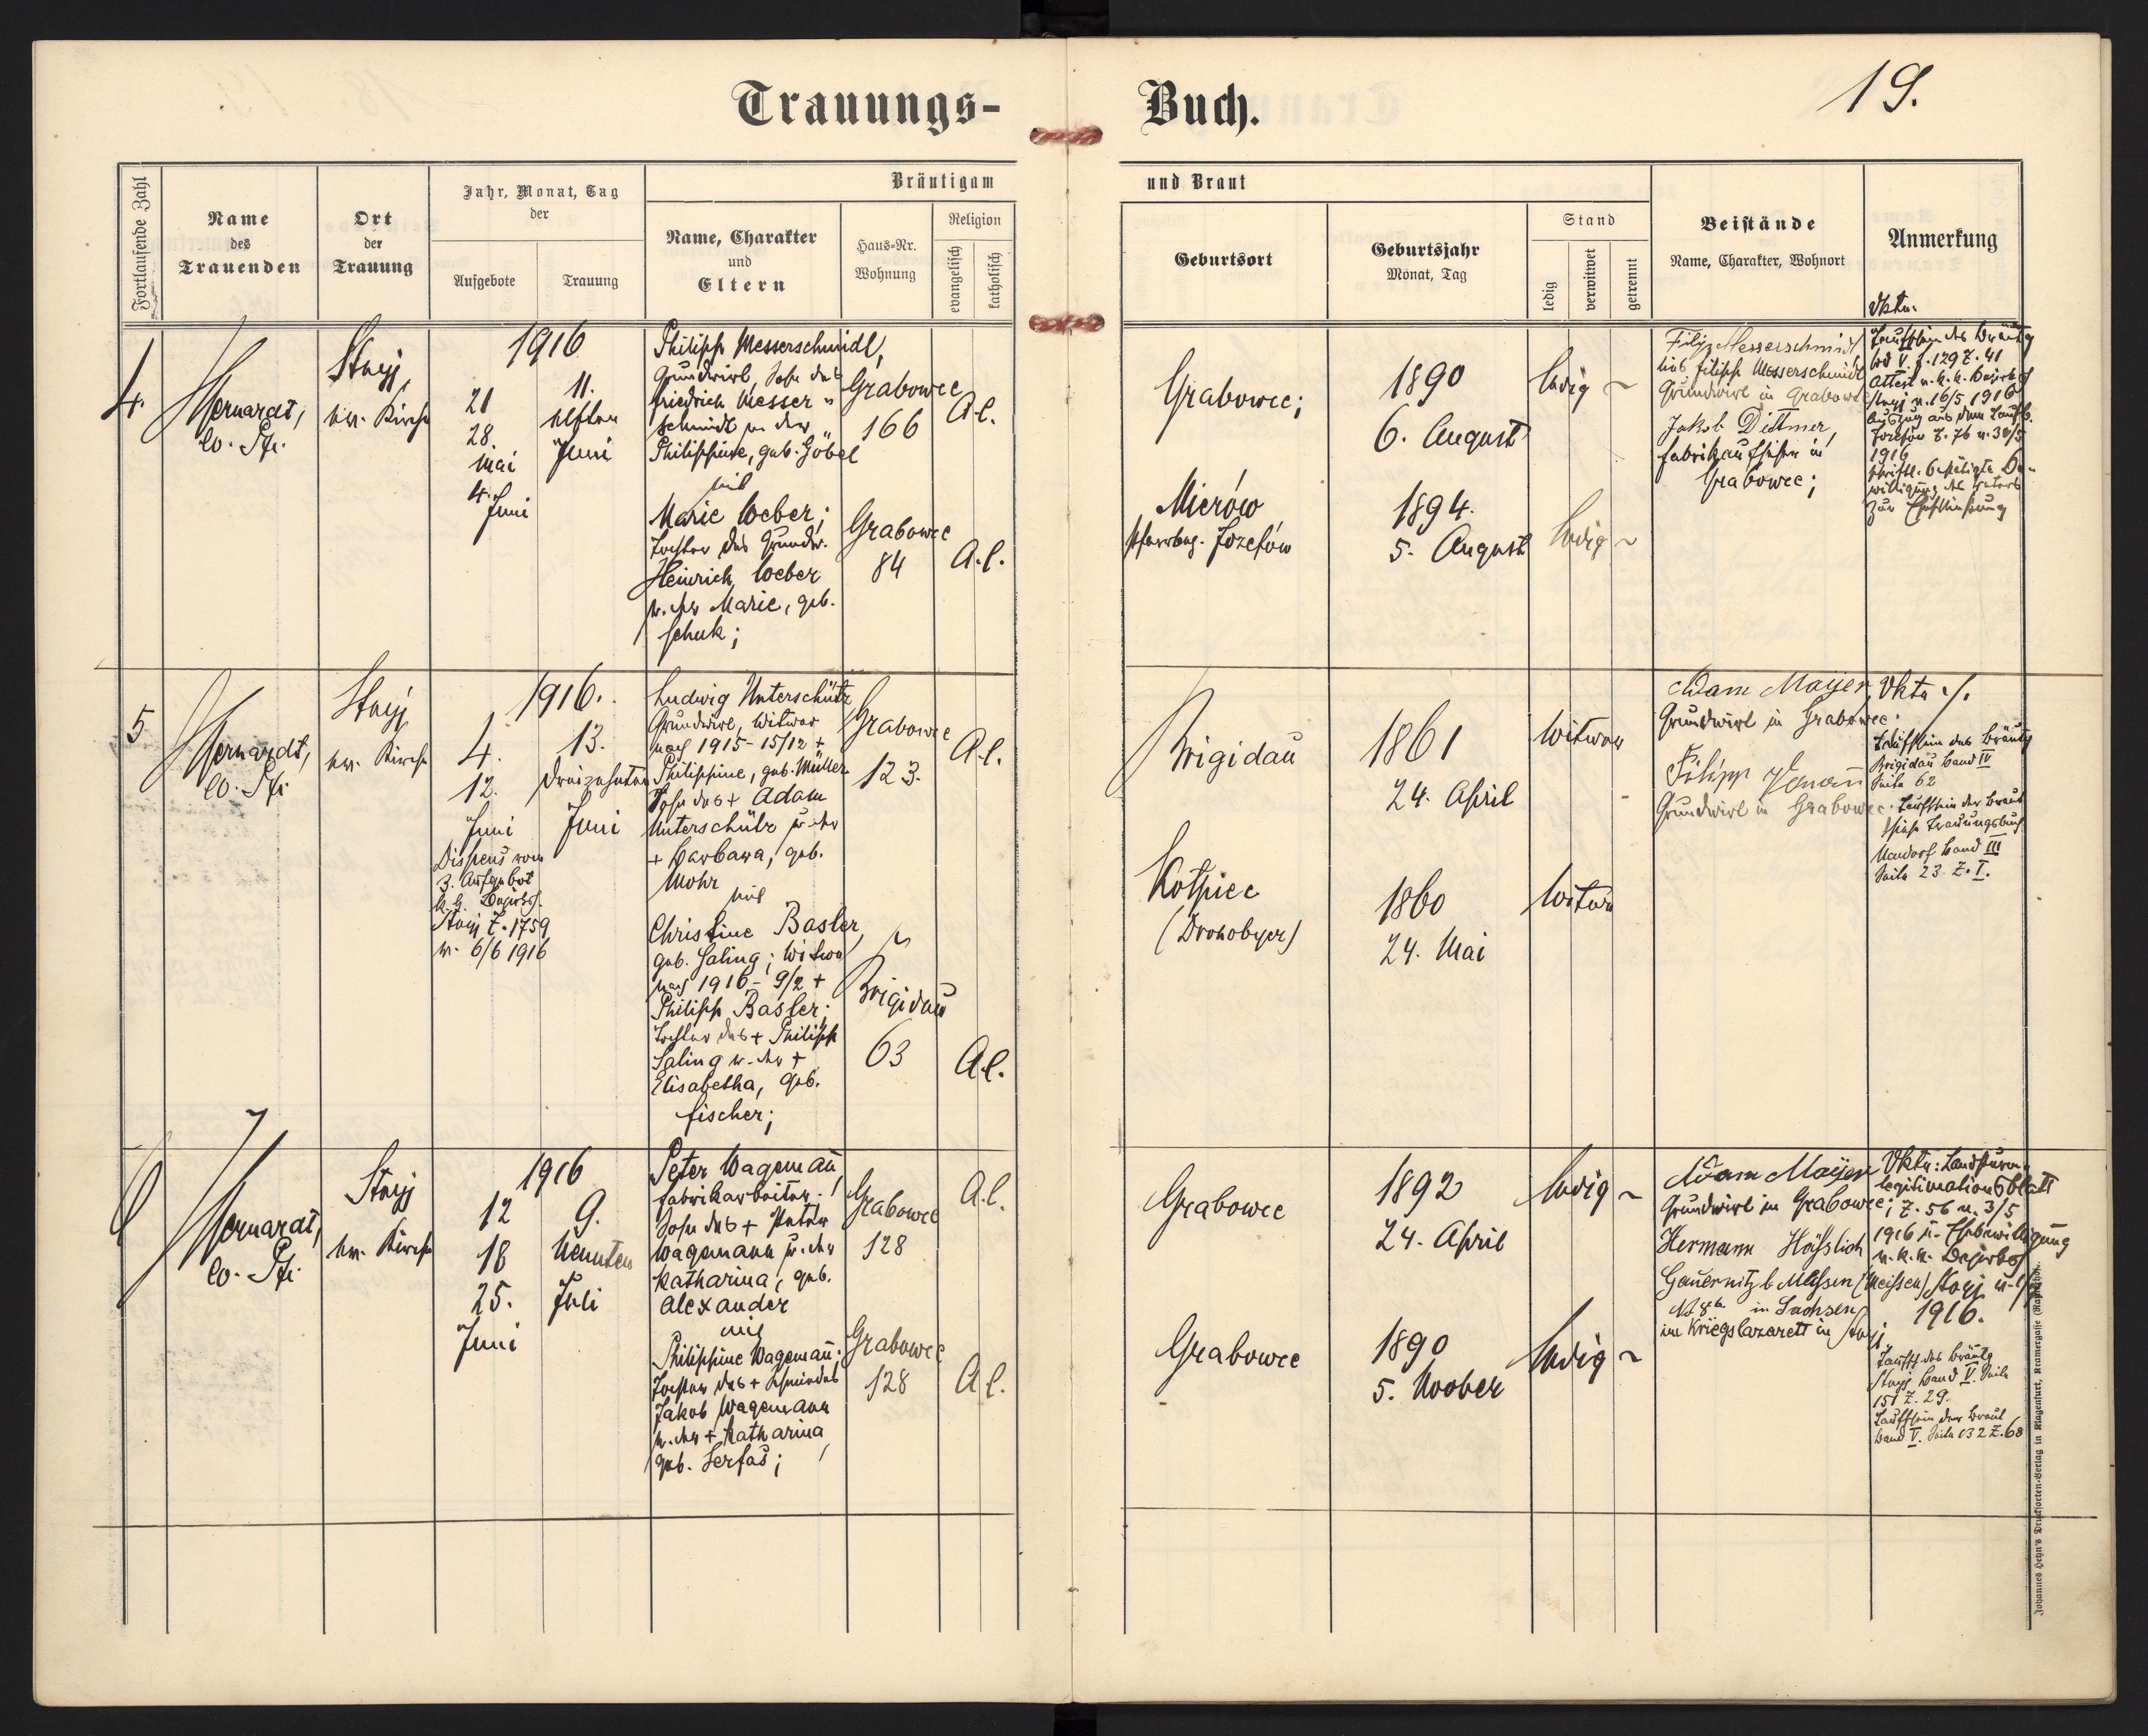 Trauungs- Buch.
19.
Fortlaufende Zahl
Name
des
Trauenden
Ort
der
Trauung
Jahr, Monat, Tag
der
Aufgebote
Trauung
Bräutigam
Name, Charakter
und
Eltern
Haus-Nr.
Wohnung
Religion
evangelisch
katholisch
und Braut
Geburtsort
Geburtsjahr
Monat, Tag
Stand
ledig
verwitwet
getrennt
Beistände
Name, Charakter, Wohnort
Anmerkung
4.
Stryj,
ev. Kirche
1916
21
28.
Mai
4. Juni
11.
elften
Juni
Philipp Messerschmidt,
Grundwirt, Sohn des
Friedrich Messer
schmidt u. der
Philippine, geb. Göbel
mit
Marie Weber;
Tochter des Grundw.
Heinrich Weber
u. der Marie, geb.
Schuk;
Grabowce
166
A.C.
Grabowce
84
A.C.
Grabowce;
1890
6. August
ledig ~
Mierów
Pfarrbez. Józefów
1894.
5. August
ledig ~
Filip Messerschmidt
Grundwirt in Grabowce
Jakob Dittmer,
Fabrikaufseher in
Grabowce;
Taufschein des Bräutg
Bd V. S. 129 Z. 41
Stryj v. 16/5 1916
Auszug aus dem Taufb.
Józefów Z. 76 v. 30/5
1916
willigung des Vaters
zur Eheschließung
5
Stryj
ev. Kirche
1916.
4.
12.
Juni
Dispens vom
3. Aufgebot
Stryj Z. 1759
v. 6/6 1916
13.
dreizehnten
Juni
Ludwig Unterschütz
Grundwirt, Witwer
nach 1915 - 15/12 +
Philippine, geb. Müller
Sohn des + Adam
Unterschütz u. der
+ Barbara, geb.
Mohr
mit
Christine Basler,
geb. Saling; Witwe
nach 1916 - 9/2 +
Philipp Basler;
Tochter des + Philipp
Saling u. der +
Elisabetha, geb.
Fischer;
Grabowce
123.
A.C.
Brigidau
63
A.C.
Brigidau
1861
24. April
Witwer
(Drohobycz)
1860
24. Mai
Witwe
Adam Mayer,
Grundwirt in Grabowce.
Filipp
Grundwirt in Grabowce.
Taufschein des Bräutg
Brigidau Band IV
Seite 62
Taufschein der Braut
siehe Trauungsbuch
Band III
Seite 23 Z. I.
6
Stryj
ev. Kirche
1916
12
18
25.
Juni
9.
Neunten
Juli
Peter Wagemañ,
Fabrikarbeiter;
Sohn des + Peter
Wagemann u. der
Katharina, geb.
Alexander
mit
Philippine Wagemañ;
Tochter des + Schmiedes
Jakob Wagemann
u. der + Katharina
geb. Serfas;
Grabowce
128
A.C.
Grabowce
128
A.C.
Grabowce
1892
24. April
ledig ~
Grabowce
1890
5. Novber
ledig ~
Adam Mayer
Grundwirt in Grabowce;
Hermann Häßlich
Gauernitz b. Meißen (Meissen)
in Sachsen
im Kriegslazarett in Stryj
Landsturm-
legitimationsblatt
Z. 56 v. 3/5
1916 u. Ehebewilligung
1916.
Taufsch. des Bräutg
Stryj Band V. Seite
151 Z. 29.
Taufschein der Braut
Band V. Seite 132 Z. 68
Johannes Heyn's Drucksorten-Verlag in Klagenfurt, Kramergasse